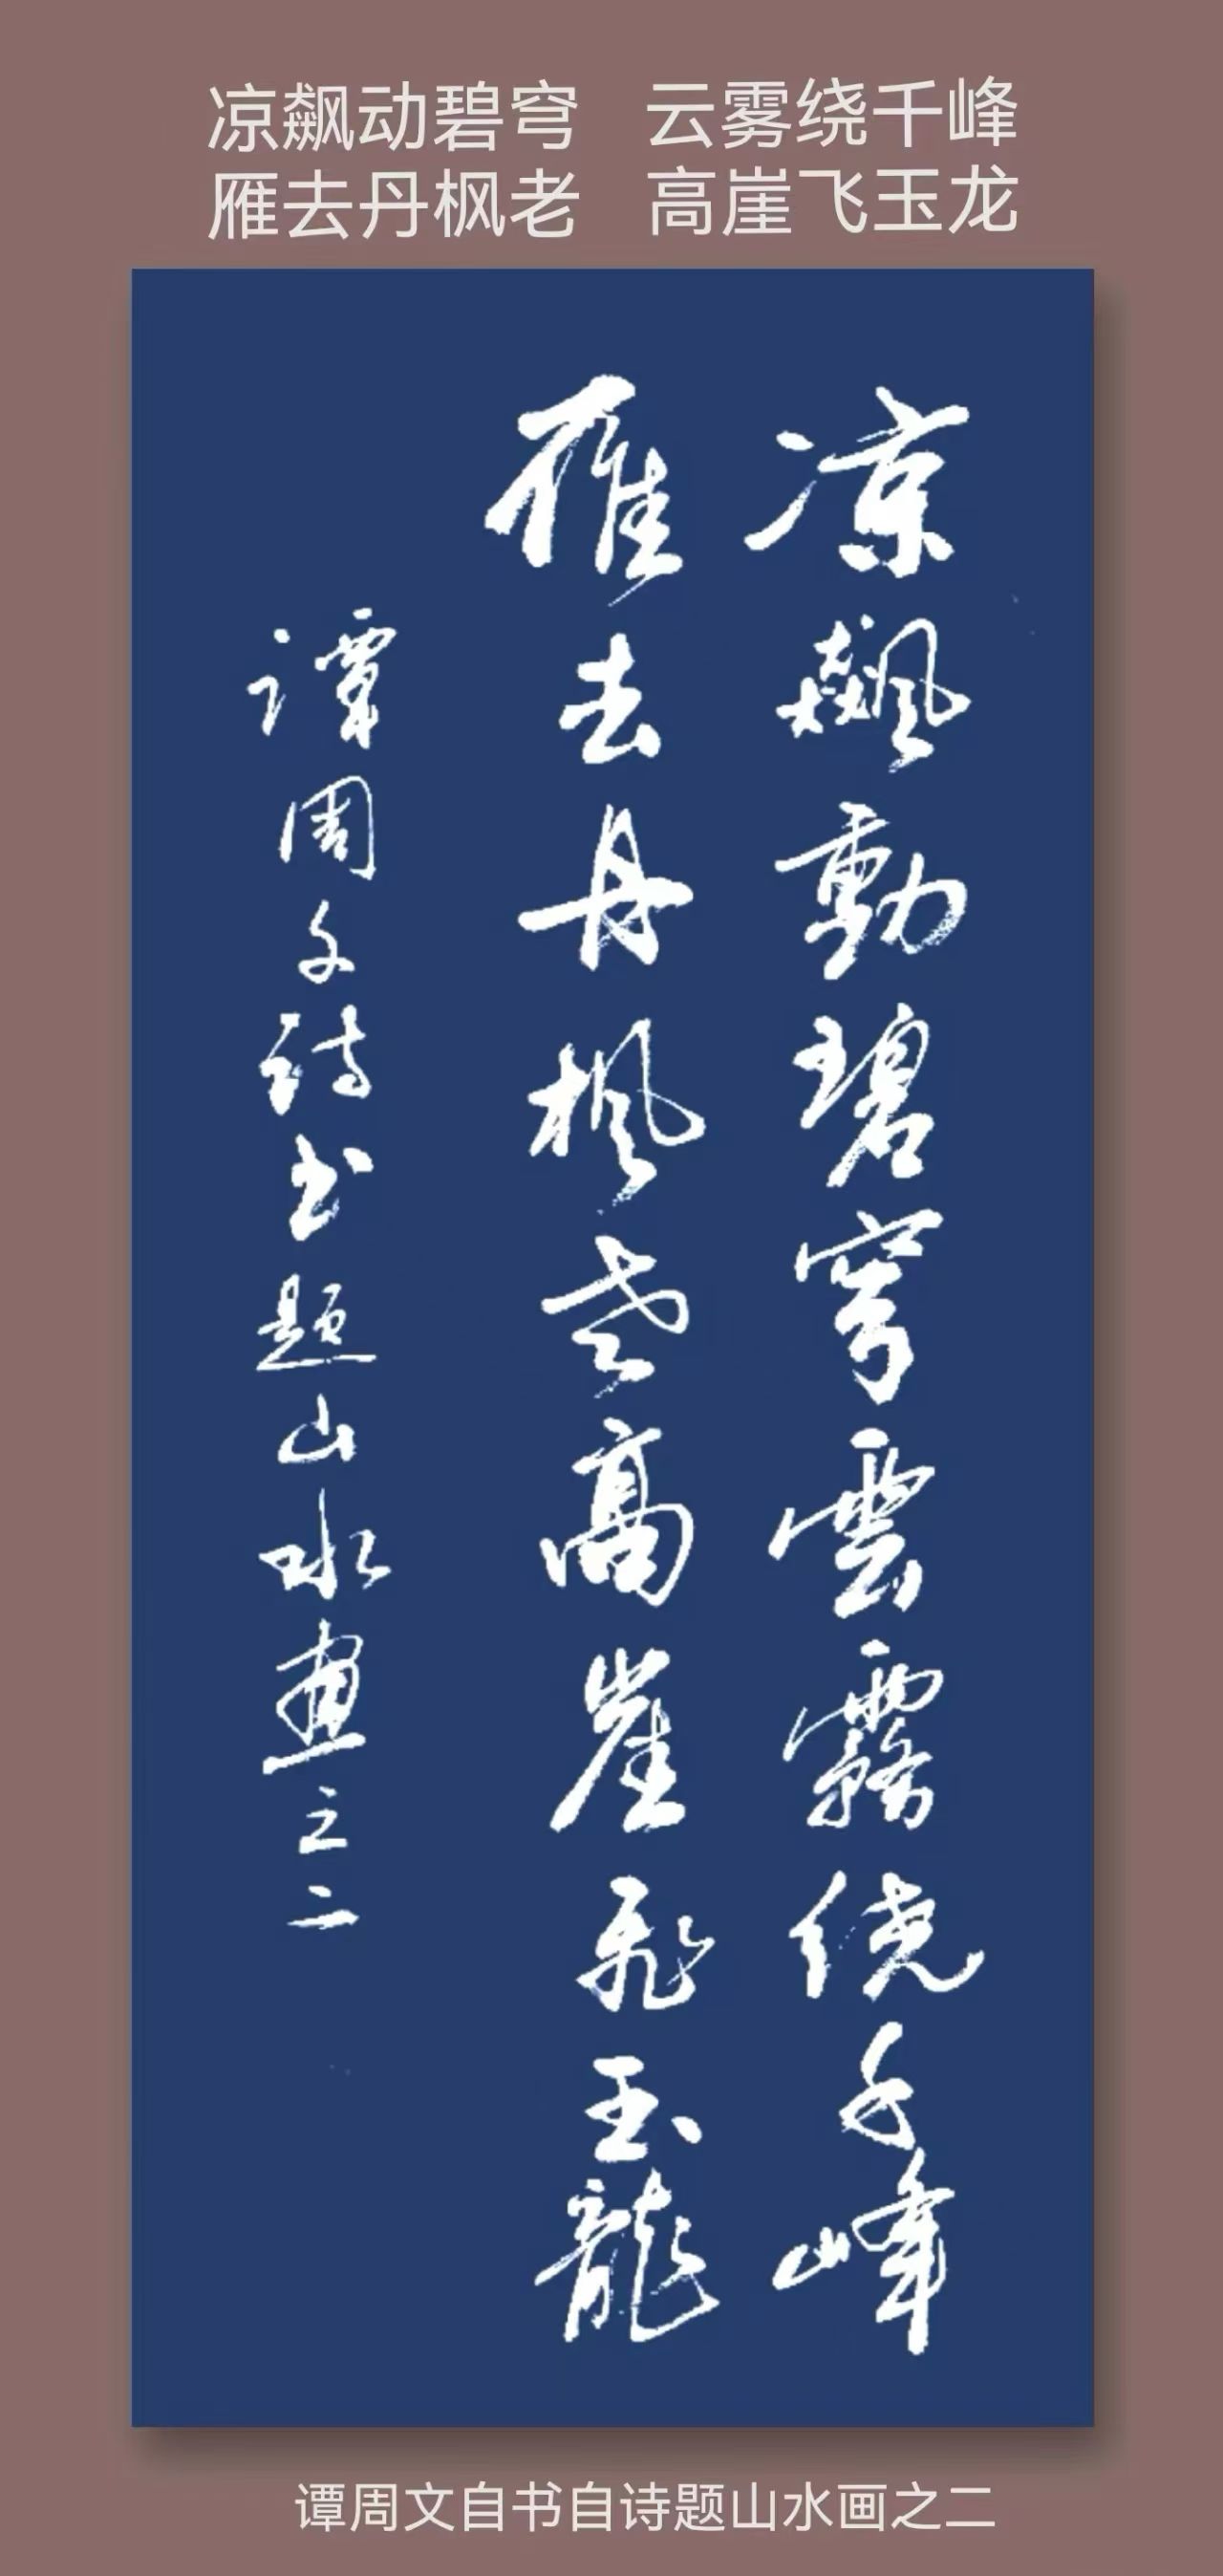 凉飙动碧穹 云雾绕千峰
雁去丹枫老 高崖飞玉龙
凉飙動碧穹雲霧绕千峰
雁去丹枫老高崖飛玉龍
谭周文诗书题山水画之二
谭周文自书自诗题山水画之二